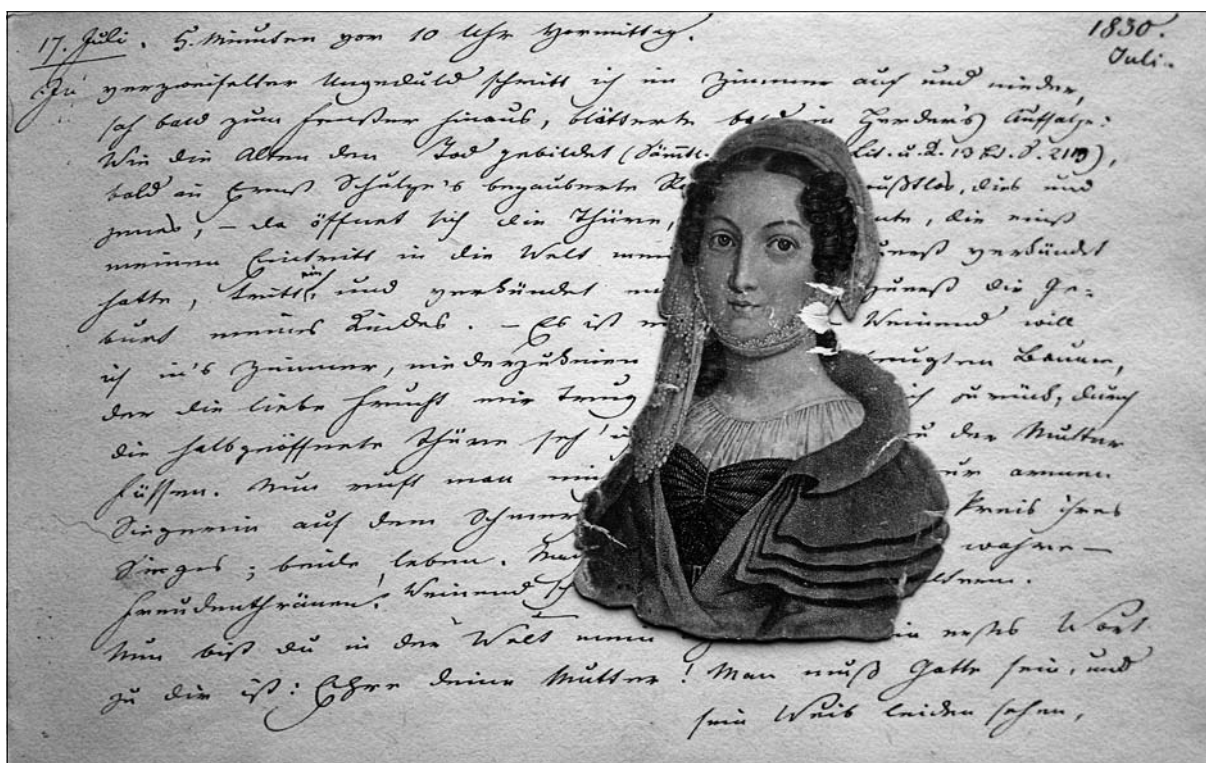 1830.
Juli.
17. Juli. 5. Minuten vor 10 Uhr Vormittag.
In verzweifelter Ungeduld schritt ich im Zimmer auf und nieder,
sah bald zum Fenster hinaus, blätterte bald in Herder's Aufsatze:
Wie die Alten den Tod gebildet (Sämtl. Lit. u. K. 13 Bd. S.
bald in Ernst Schulze's bezauberte dies und
jenes, – da öffnet sich die Thüre, die einst
meinen Eintritt in die Welt zuerst verkündet
hatte, tritt ein und verkündet zuerst die Ge-
burt meines Kindes. – Es ist Weinend will
ich in's Zimmer, niederzuknien Baum,
der die liebe Frucht mir trug zurück, durch
die halbgeöffnete Thüre seh' der Mutter
Füssen. Nun ruft man armen
Siegerin auf dem Preis ihres
Sieges; beide leben. wahre –
Freudenthränen! Weinend
Nun bist du in der Welt mein erstes Wort
zu dir ist: Ehre deine Mutter! Man muß Gatte sein, und
sein Weib leiden sehen,